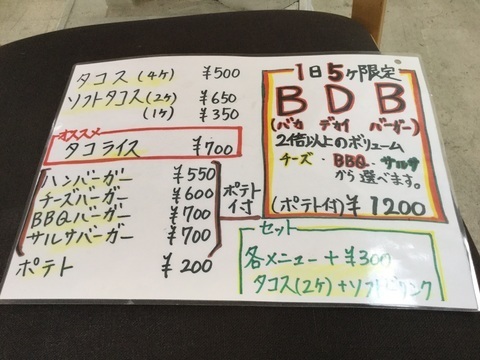 タコス(4ケ) ¥500
ソフトタコス(2ケ) ¥650
(1ケ) ¥350
オススメ
タコライス ¥700
ハンバーガー ¥550
チーズバーガー ¥600
BBQバーガー ¥700
サルサバーガー ¥700
ポテト付
ポテト ¥200
1日5ケ限定
BDB
(バカ デカイ バーガー)
2倍以上のボリューム
チーズ・BBQ・サルサ
から選べます。
(ポテト付) ¥1200
セット
各メニュー+¥300
タコス(2ケ)+ソフトドリンク